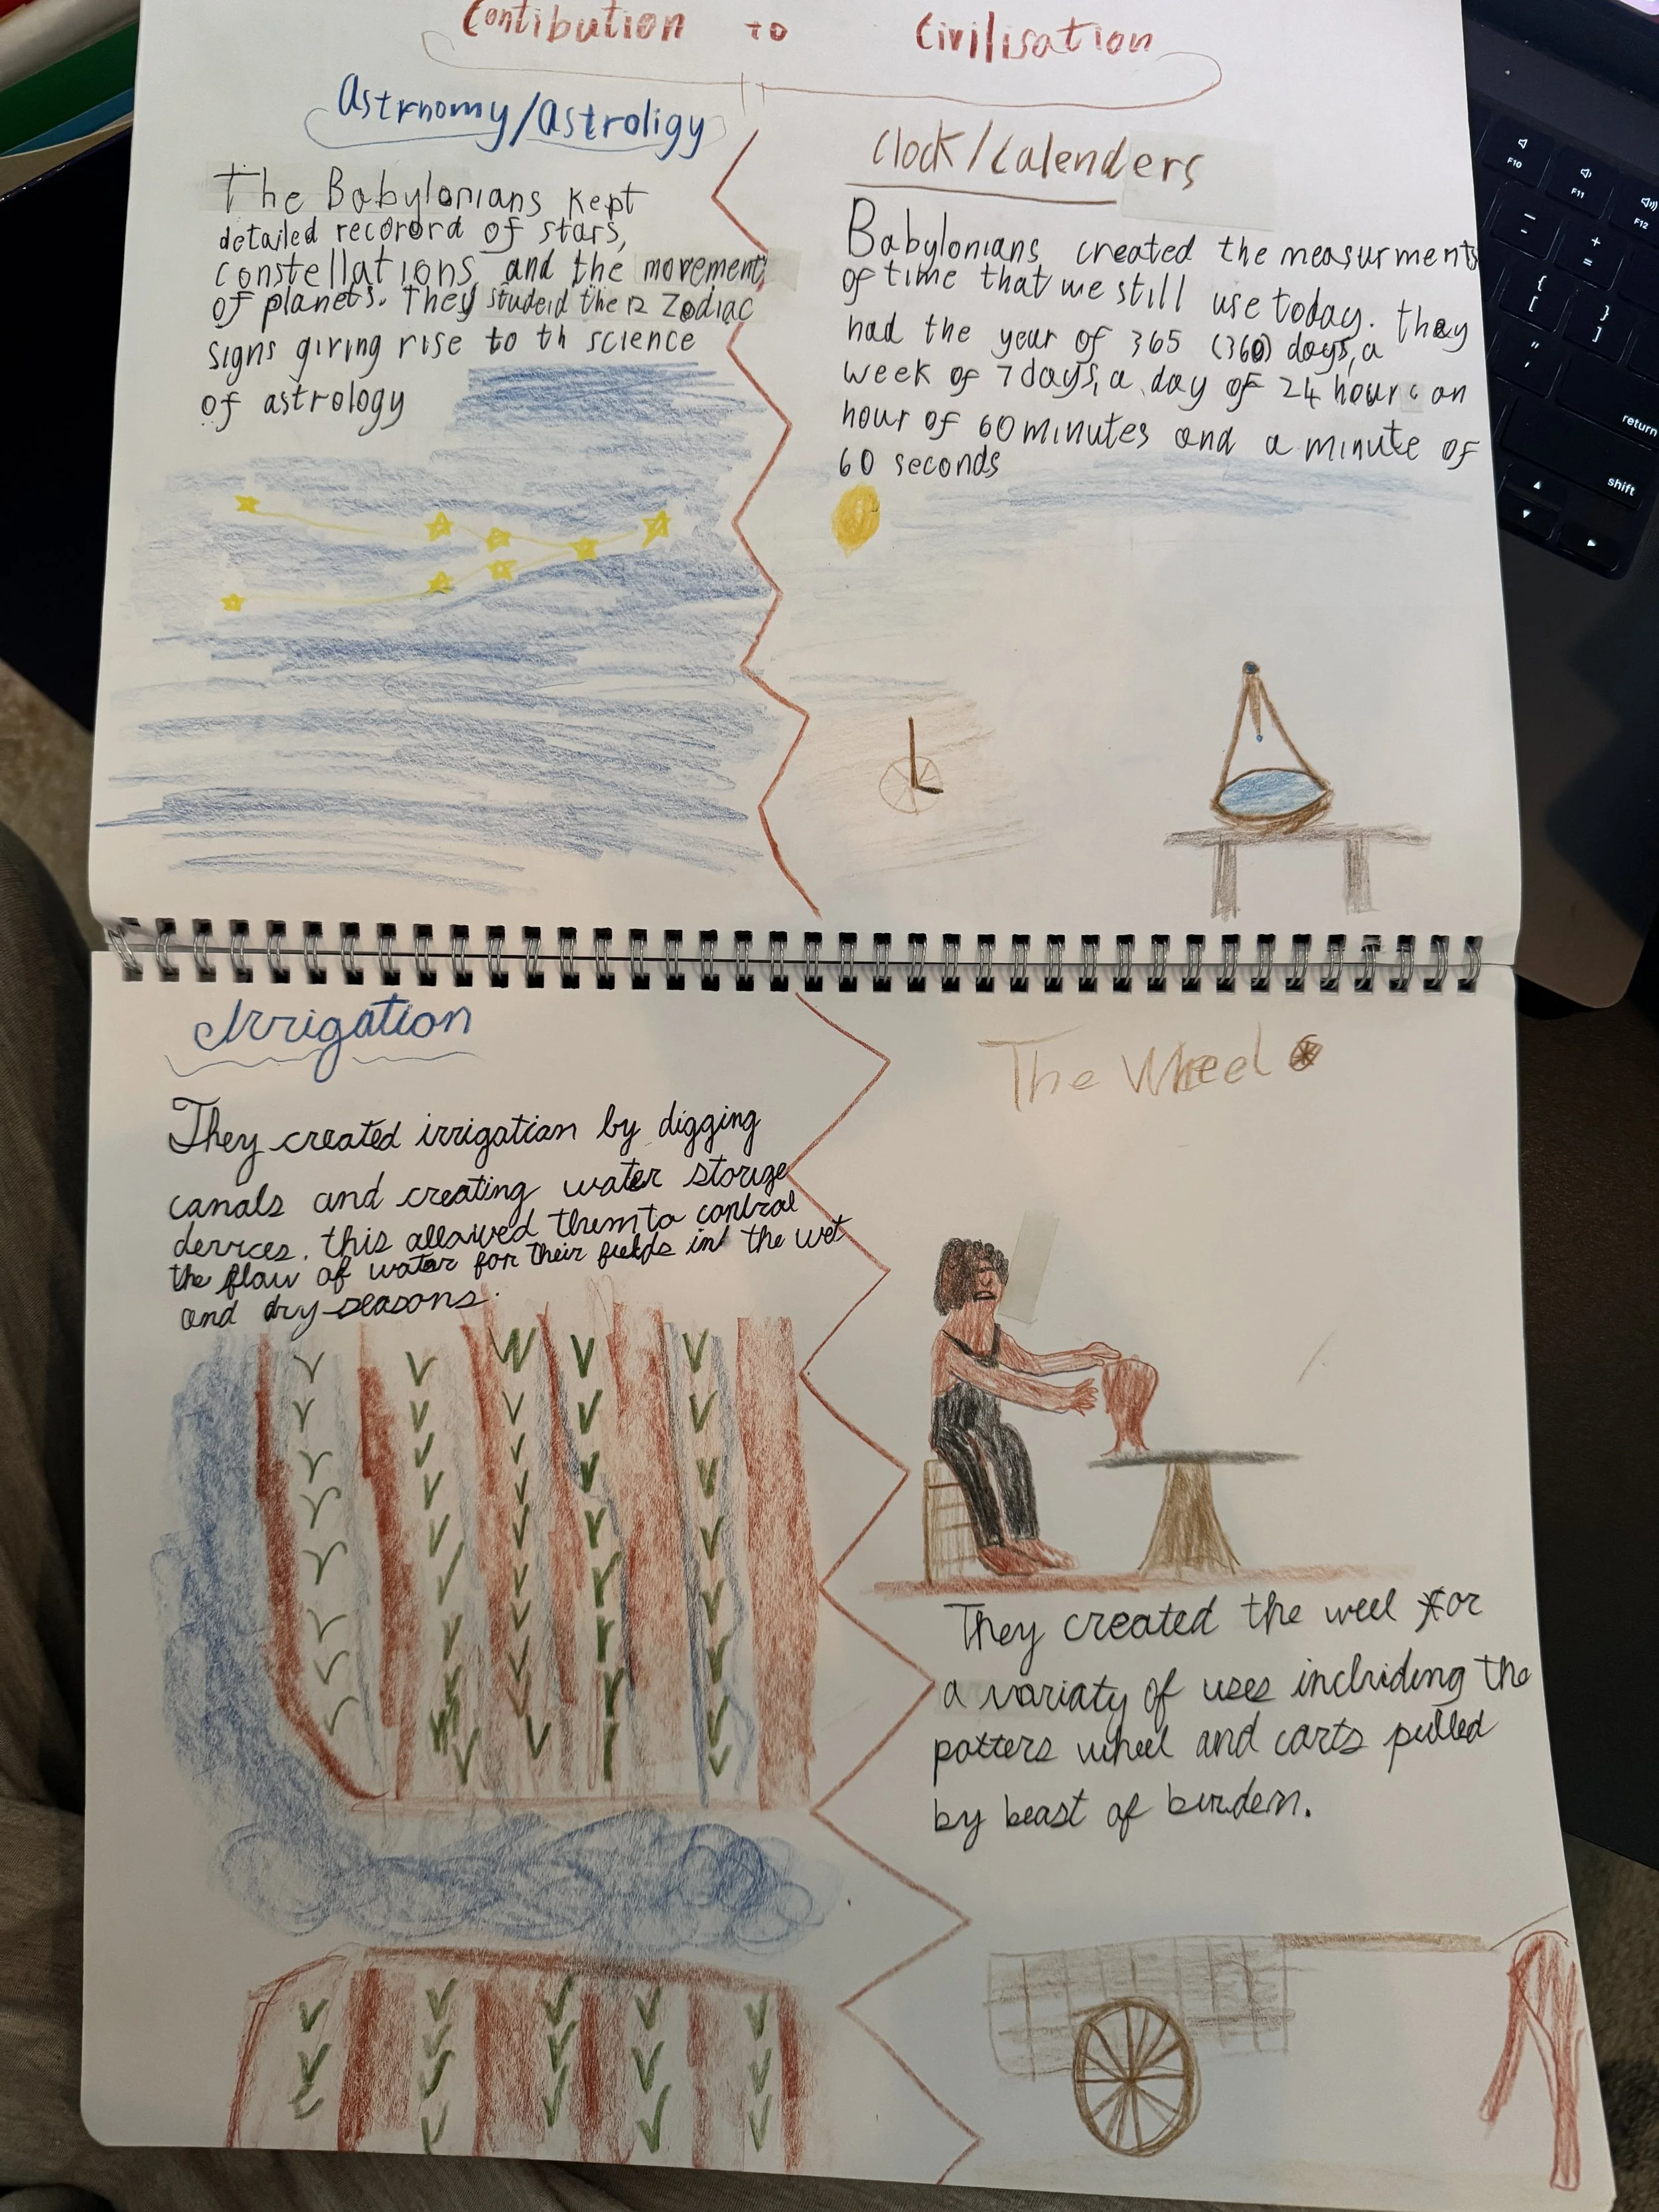 Contibution to Civilisation
Astrnomy/Astroligy
The Babylonians kept
detailed recorord of stars,
constellations and the movement,
of planets. They studeid the 12 Zodiac
signs giving rise to th science
of astrology
Clock/Calenders
Babylonians created the measurments
of time that we still use today. they
had the year of 365 (360) days, a
week of 7 days, a day of 24 hours an
hour of 60 minutes and a minute of
60 seconds
Irrigation
They created irrigation by digging
canals and creating water storage
devices. this allowed them to control
the flow of water for their fields in the wet
and dry seasons.
The Wheel
They created the weel for
a variaty of uses including the
potters wheel and carts pulled
by beast of burden.
F10
F11
F12
return
shift